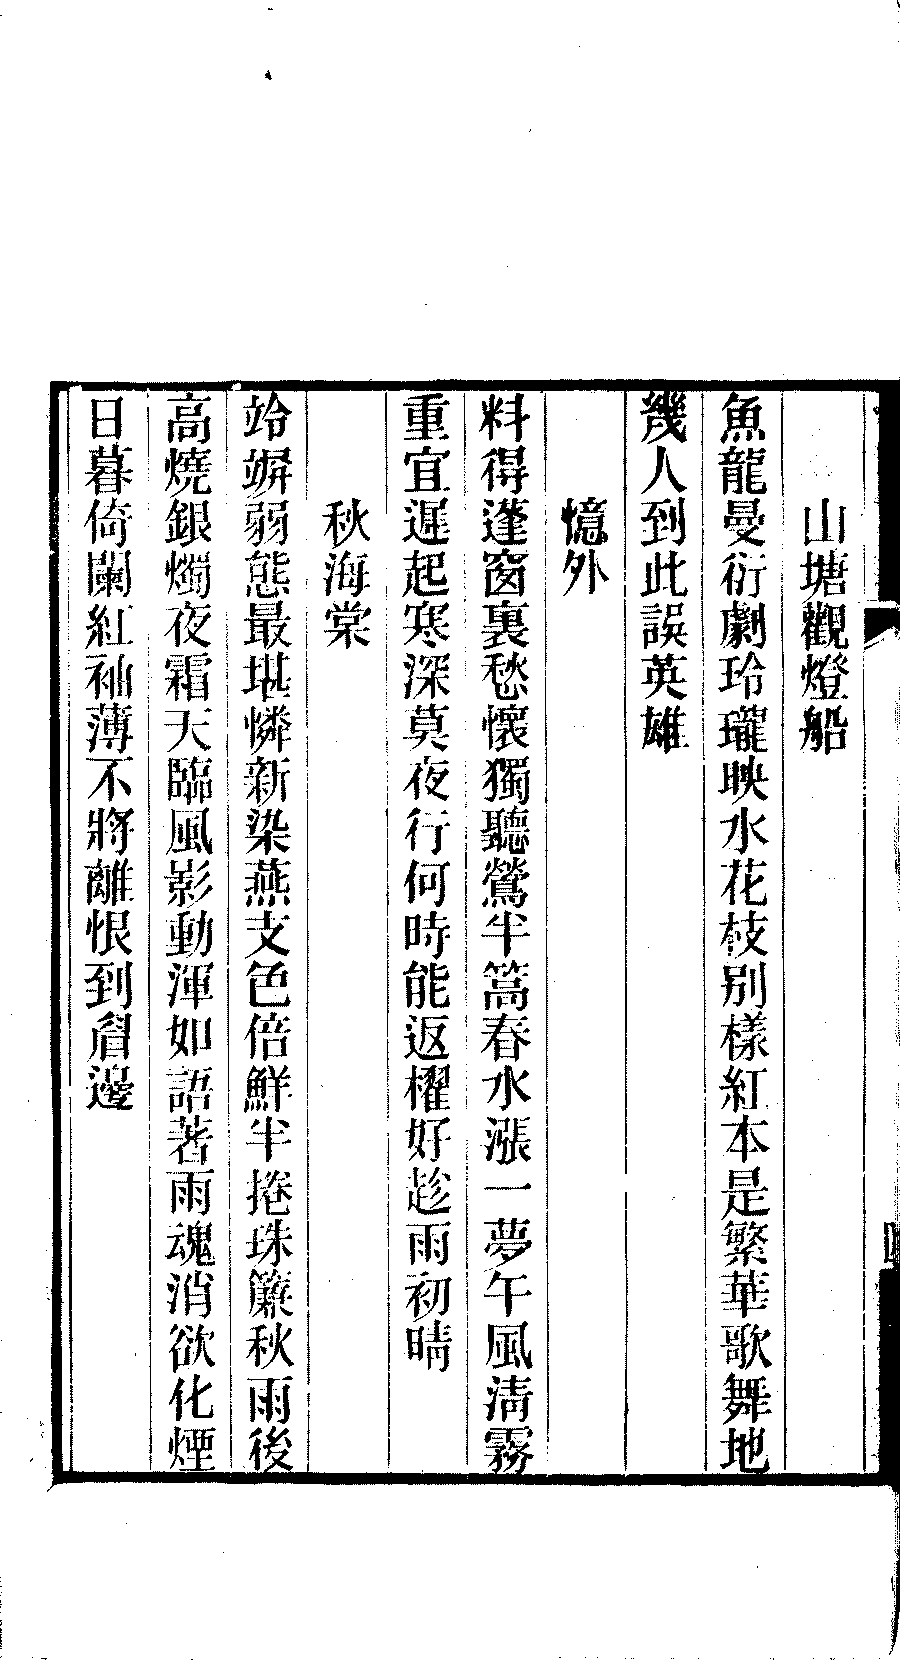 山塘觀燈船
魚龍曼衍劇玲瓏映水花枝別樣紅本是繁華歌舞地
幾人到此誤英雄
憶外
料得蓬窗裏愁懷獨聽鶯半篙春水漲一夢午風清霧
重宜遲起寒深莫夜行何時能返櫂好趁雨初晴
秋海棠
竛竮弱態最堪憐新染燕支色倍鮮半捲珠簾秋雨後
高燒銀燭夜霜天臨風影動渾如語著雨魂消欲化煙
日暮倚闌紅袖薄不將離恨到眉邊